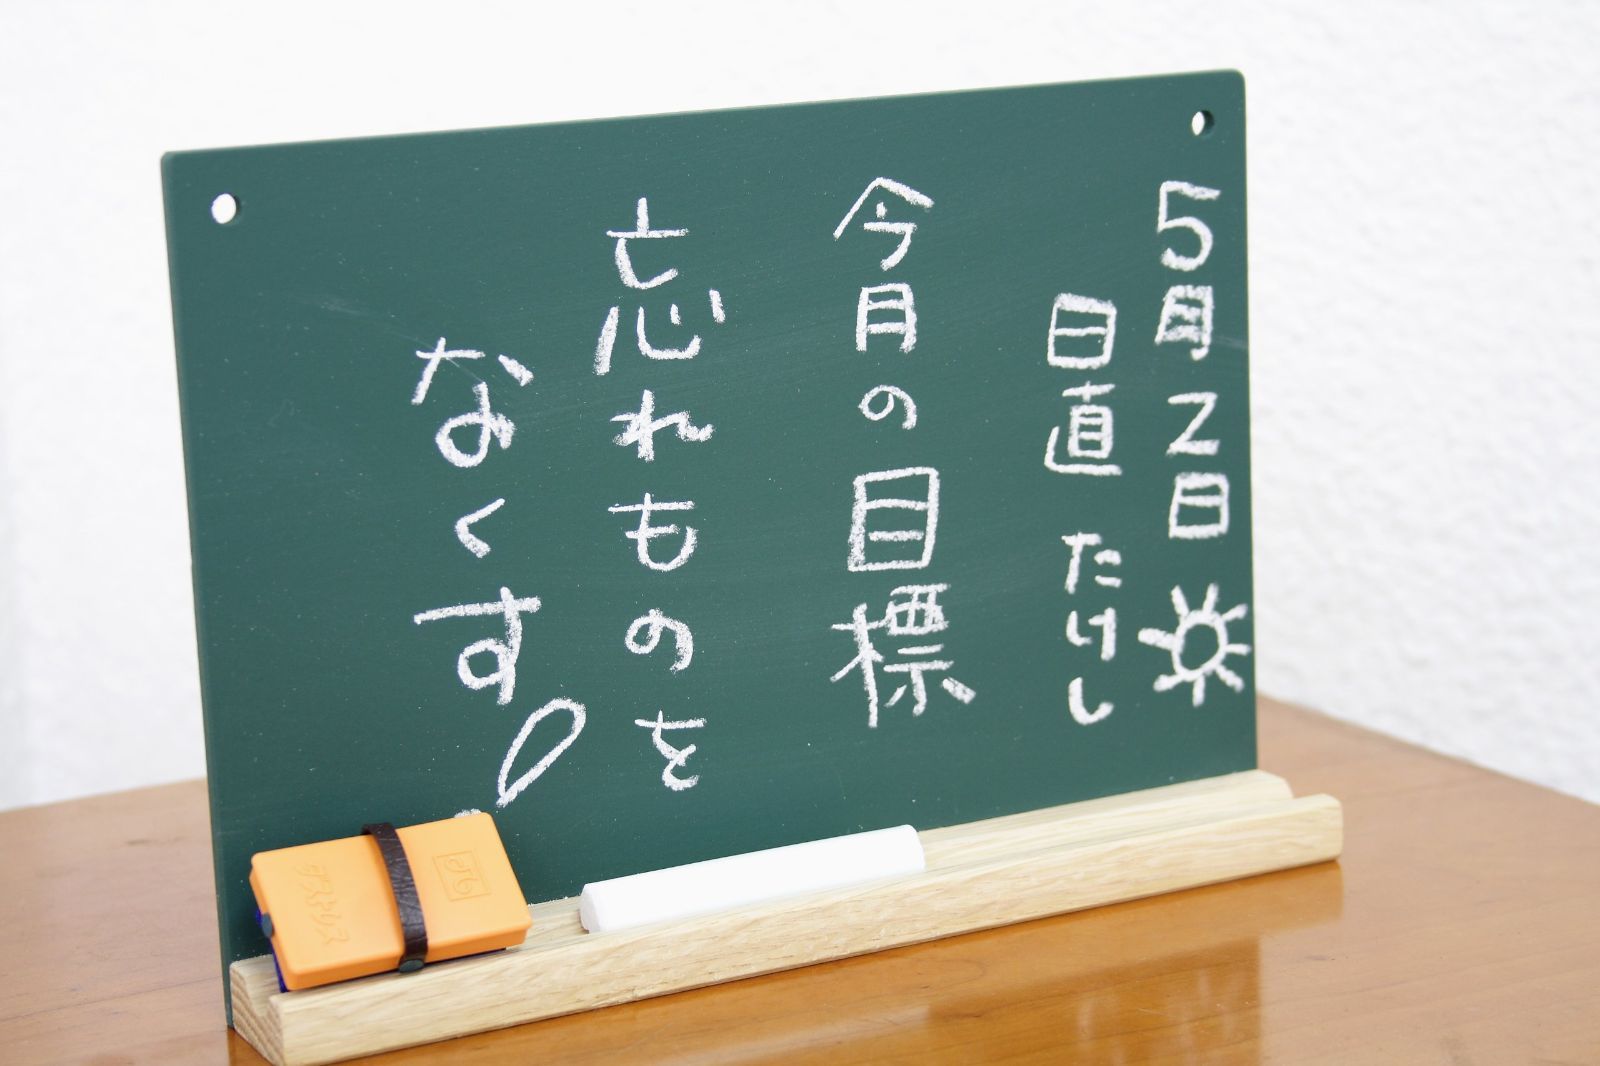 5月2日
日直 たけし
今月の目標
忘れものを
なくす!